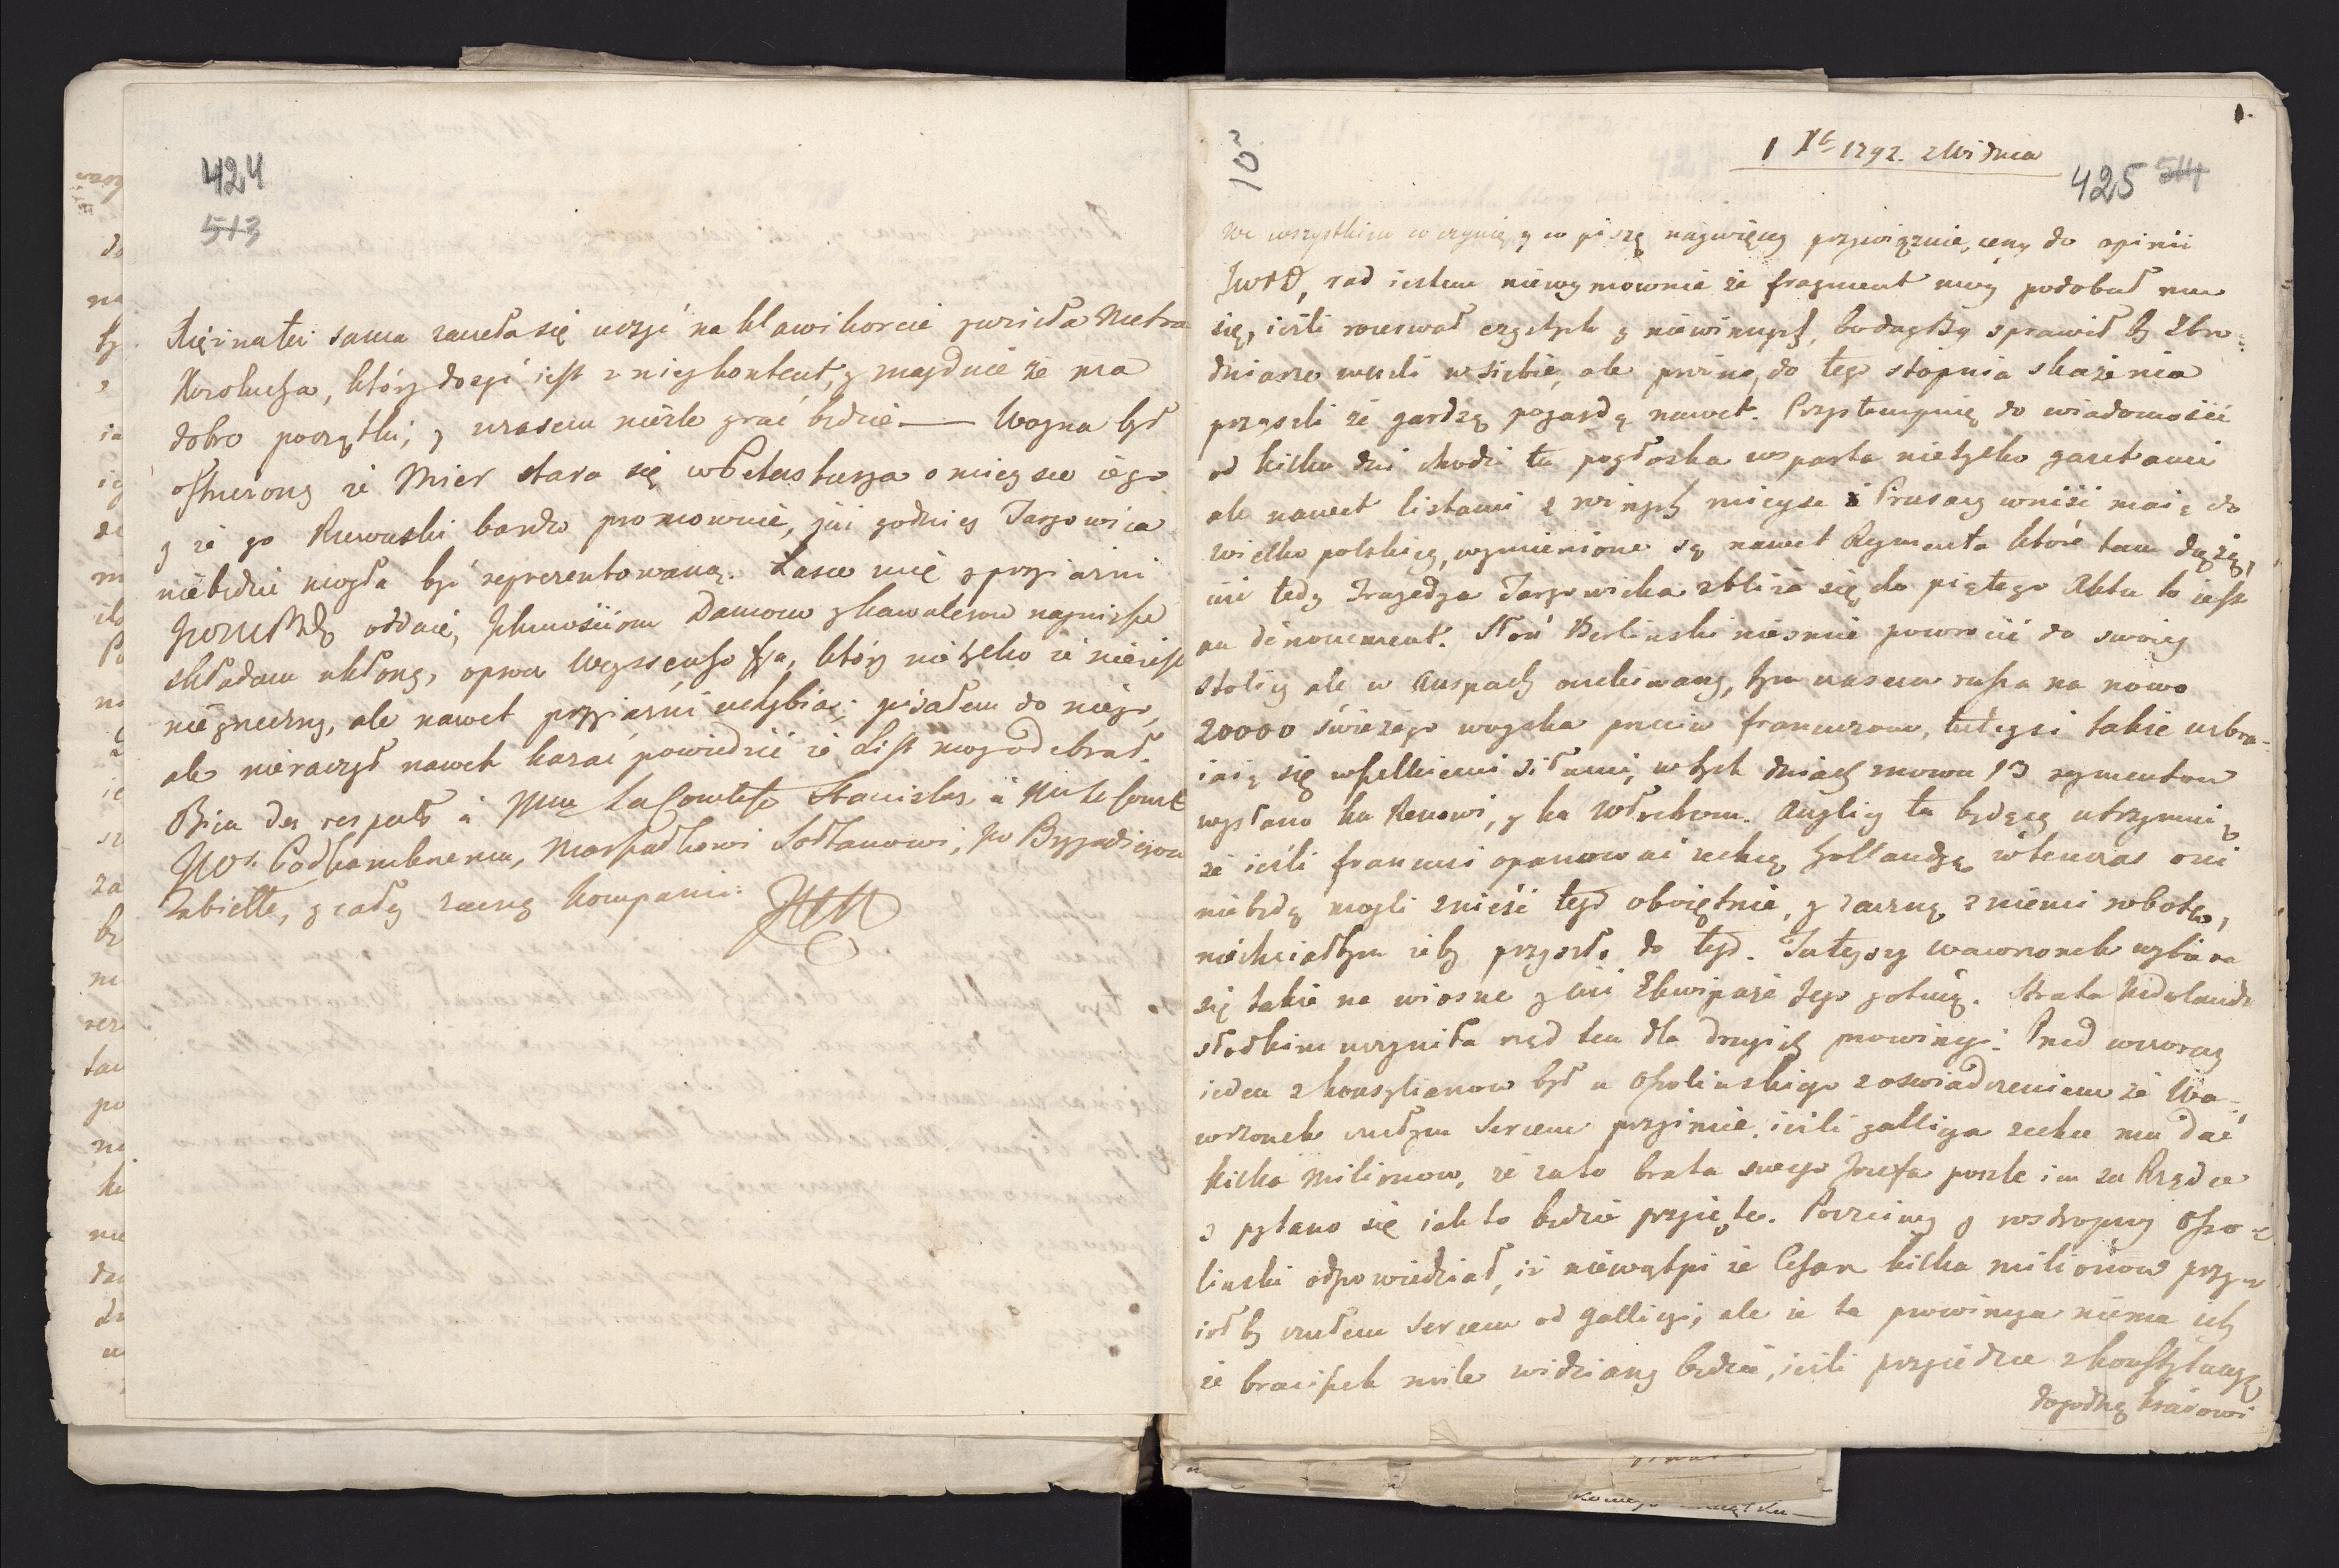 424
513
Xiężnatei sama zaczeła się uczyć na klawikorcie zwiesła Metra
Kozolucha, który dosyć jest z niey kontent, y znayduie że ma
dobre początki, y czasem nieźle grać będzie — Woyna był
ostrzeżony że Mier stara się w Petersburga o mieysce iego
y że go Rzewuski bardzo promowuie, już godniey Targowica
niebędzie mogła być reprezentowaną. Łasce mię y przyiaźni
JWWMD oddaię, Ichmościom Damom y kawalerom nayniższe
składam ukłony, oprocz Weyssenhoffa, który nietylko że nieiest
niegrzeczny, ale nawet przyiaźni uchybia; pisałem do niego,
ale nieraczył nawet kazać powiedzieć że List moy odebrał.
Bien des respects à Mme La Comtesse Stanislas à Mr le Comte
JWo. Podkomorzemu, Marszałkowi Sołtanowi, JO Brygadierowi
Zabielle, y całey zacney kompanii.
10
1 Xbr 1792. z Widnia
425 514
1.
We wszystkim co czynię, y co piszę naywięcey przywiązuię ceny do opinii
JWWD, rad iestem niewymownie że fragment moy podobał mu
się, ieśli rozerwał czystych y niewinnych, bodayby sprawił by Zbro-
dniarze weszli w siebie, ale pewno do tego stopnia skażenia
przyszli że gardzą pogardą nawet. Przystempuię do wiadomości
od kilku dni chodzi tu pogłoska wsparta nietylko gazetami
ale nawet listami z innych mieysc iż Prusacy wniść maią do
wielko polskiey, wymienione są nawet Regimenta które tam dążą,
iuż tedy Tragedya Targowicka zbliża się do piątego Aktu to iest
au dénouement. Dwór Berlinski nieśmie powrocić do swoiey
stolicy ale w Anspach oczekiwany, tym czasem rusza na nowo
20000 świeżego woyska przeciw francuzom, tuteysi także uzbra-
iaią się wszelkiemi siłami, w tych dniach znowu 13 regimentow
wysłano ku Renowi, y ku Włochom. Anglicy tu będący utrzymuią
że ieśli francuzi opanować zechcą Hollandyą wtenczas oni
niebędą mogli znieść tego oboiętnie, y zaczną z niemi robotę,
niechciałbym żeby przyszło do tego. Tuteyszy Wawrzonek wybiera
się także na wiosnę y iuż Ekwipaże Jego gotuią. Strata Niderlandu
słodkim uczyniła rząd ten dla drugich prowincyi. Przed wczoray
ieden z konsyliarzow był u Ossolinskiego z oświadczeniem że Wa-
wrzonek czułym sercem przyimie, ieśli gallicya zechce mu dać
kilka milionow, że za to brata swego Jozefa poszle im za Rządcę
y pytano się iak to będzie przyięte. Poczciwy y rostropny Osso-
linski odpowiedział, iż niewątpi że Cesarz kilka milionow przy-
iąłby czułem sercem od gallicyi, ale że ta prowincya niema ich
że braciszek mile widziany będzie, ieśli przyiedzie z konstytucyą
dogodną kraiowi